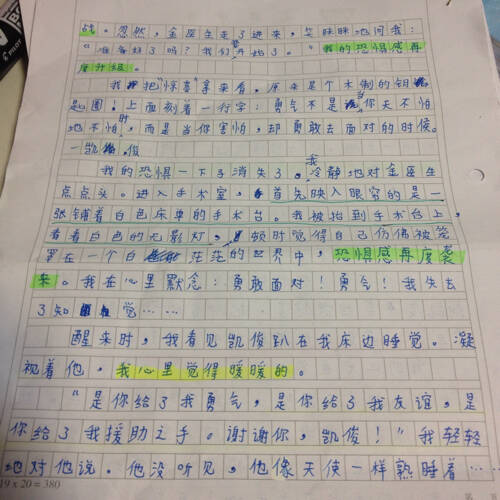 战。忽然，金医生走了进来，笑眯眯地问我：
“准备好了吗？我们要开始了。”我的恐惧感再
度升级。
我把“惊喜”拿来看，原来是个木制的钥
匙圈，上面刻着一行字：勇气不是当你天不怕
地不怕时，而是当你害怕，却勇敢去面对的时候。
—凯俊
我的恐惧一下子消失了，我冷静地对金医生
点点头。进入手术室，首先映入眼帘的是一
张铺着白色床单的手术台。我被抬到手术台上，
看着白色的无影灯，顿时觉得自己仿佛被笼
罩在一个白茫茫的世界中，恐惧感再度袭
来。我在心里默念：勇敢面对！勇气！我失去
了知觉……
醒来时，我看见凯俊趴在我床边睡觉。凝
视着他，我心里觉得暖暖的。
“是你给了我勇气，是你给了我友谊，是
你给了我援助之手。谢谢你，凯俊！”我轻轻
地对他说。他没听见，他像天使一样熟睡着…
19 x 20 = 380
PILOT